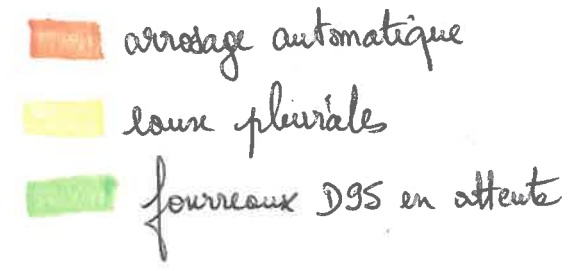 arrosage automatique
eaux pluviales
fourreaux D95 en attente